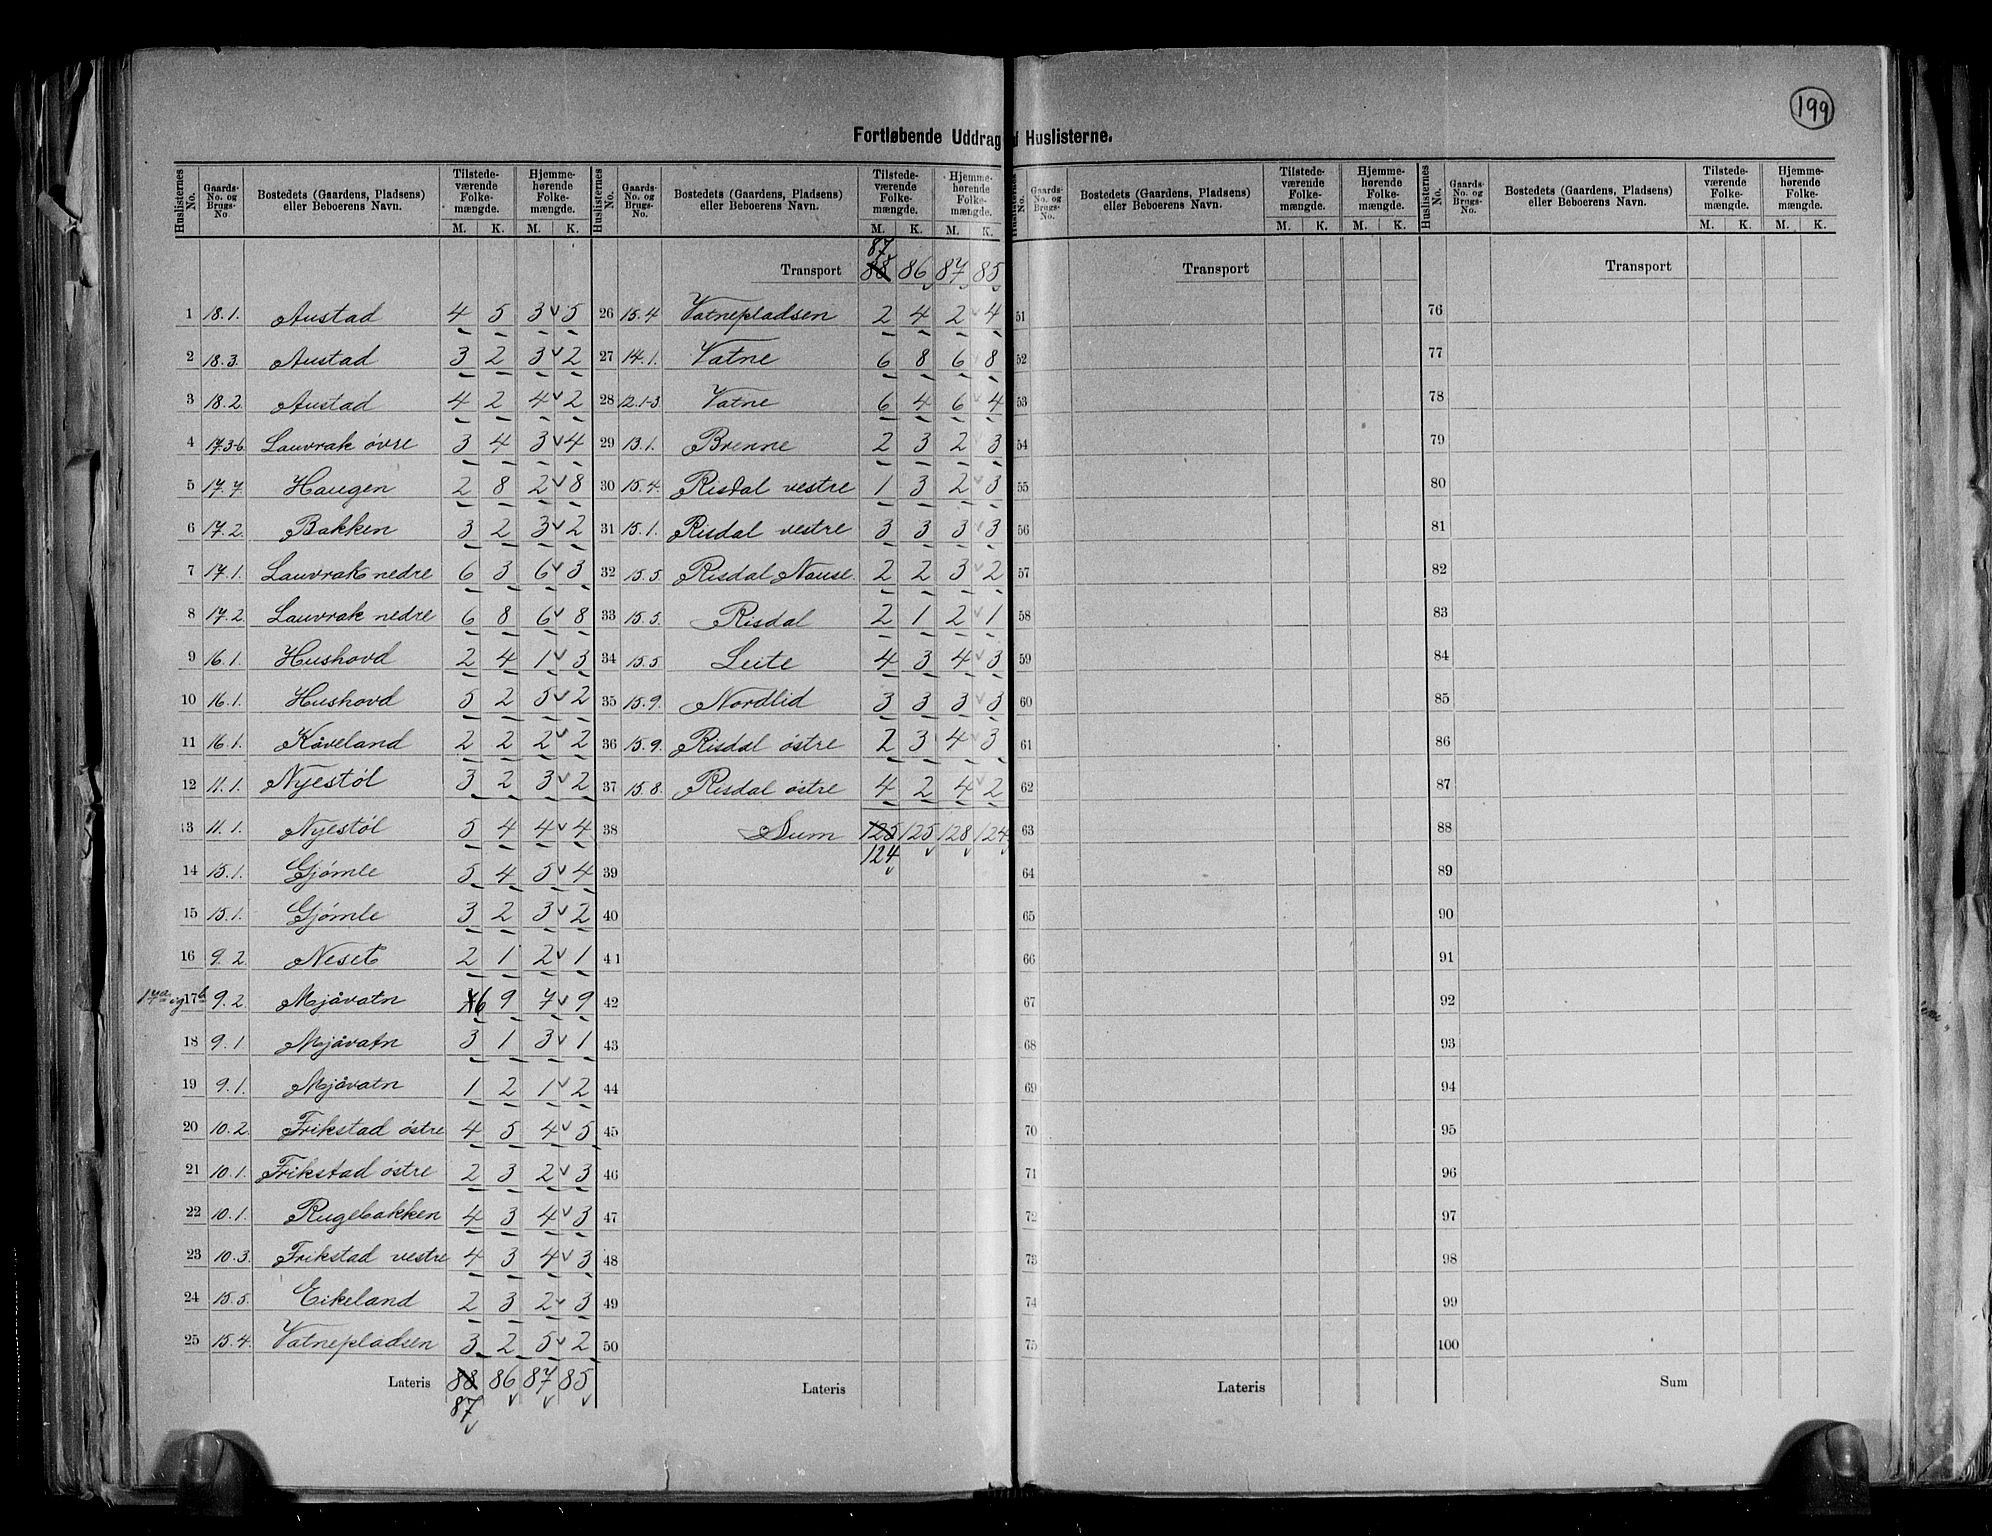 199
Fortløbende Uddrag Huslisterne.
Huslisternes No. Gaards-No. og Brugs-No. Bostedets (Gaardens, Pladsen) eller Beboerens Navn. Tilstedeværende Folkemængde. M. K. Hjemmehørende Folkemængde. M. K.
1 18.1. Austad 4 5 3 v 5
2 18.3. Austad 3 2 3 v 2
3 18.2. Austad 4 2 4 v 2
4 17.3-6 Lauvrak övre 3 4 3 v 4
5 17.7 Haugen 2 8 2 v 8
6 17.2. Bakken 3 2 3 v 2
7 17.1. Lauvrak nedre 6 3 6 v 3
8 17.2. Lauvrak nedre 6 8 6 v 8
9 16.1. Hushovd 2 4 1 v 3
10 16.1. Hushovd 5 2 5 v 2
11 16.1. Kåveland 2 2 2 v 2
12 11.1. Nyestöl 3 2 3 v 2
13 11.1. Nyestöl 5 4 4 v 4
14 15.1. Gjömle 5 4 5 v 4
15 15.1. Gjömle 3 2 3 v 2
16 9.2. Neset 2 1 2 v 1
17a og 17b 9.2. Mjåvatn 7 6 9 7 v 9
18 9.1 Mjåvatn 3 1 3 v 1
19 9.1. Mjåvatn 1 2 1 v 2
20 10.2. Frikstad östre 4 5 4 v 5
21 10.1. Frikstad östre 2 3 2 v 3
22 10.1. Rugebakken 4 3 4 v 3
23 10.3. Frikstad vestre 4 3 4 v 3
24 15.5. Eikeland 2 3 2 v 3
25 15.4. Vatnepladsen 3 2 5 v 2
Lateris 88 86 87 85
87
Huslisternes No. Gaards-No. og Brugs-No. Bostedets (Gaardens, Pladsen) eller Beboerens Navn. Tilstedeværende Folkemængde. M. K. Hjemmehørende Folkemængde. M. K.
87
Transport 88 86 87 85
26 15.4 Vatnepladsen 2 4 2 v 4
27 14.1. Vatne 6 8 6 v 8
28 12.1-3 Vatne 6 4 6 v 4
29 13.1. Brenne 2 3 2 v 3
30 15.4. Risdal vestre 1 3 2 v 3
31 15.1. Risdal vestre 3 3 3 v 3
32 15.5 Risdal Nause. 2 2 3 v 2
33 15.5. Risdal 2 1 2 v 1
34 15.5 Leite 4 3 4 v 3
35 15.9. Nordlid 3 3 3 v 3
36 15.9. Risdal östre 2 3 4 v 3
37 15.8. Risdal östre 4 2 4 v 2
38 Sum 125 125 128 124
124
39
40
41
42
43
44
45
46
47
48
49
50
Lateris
Huslisternes No. Gaards-No. og Brugs-No. Bostedets (Gaardens, Pladsen) eller Beboerens Navn. Tilstedeværende Folkemængde. M. K. Hjemmehørende Folkemængde. M. K.
Transport
51
52
53
54
55
56
57
58
59
60
61
62
63
64
65
66
67
68
69
70
71
72
73
74
75
Lateris
Huslisternes No. Gaards-No. og Brugs-No. Bostedets (Gaardens, Pladsen) eller Beboerens Navn. Tilstedeværende Folkemængde. M. K. Hjemmehørende Folkemængde. M. K.
Transport
76
77
78
79
80
81
82
83
84
85
86
87
88
89
90
91
92
93
94
95
96
97
98
99
100
Sum